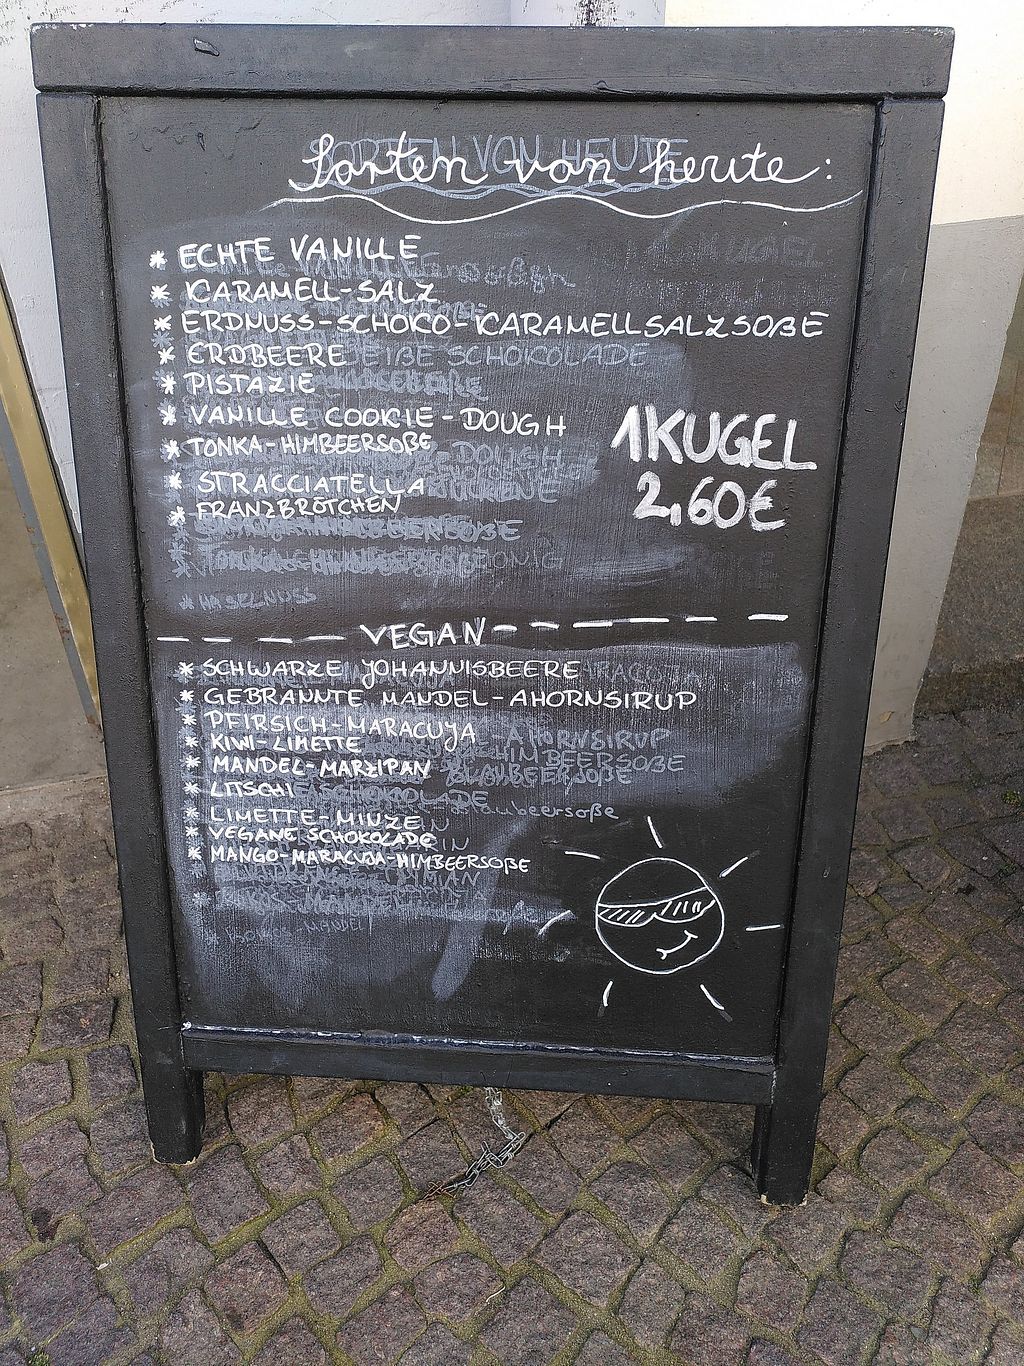 Sorten von heute:
* ECHTE VANILLE
* KARAMELL-SALZ
* ERDNUSS-SCHOKO-KARAMELLSALZSOßE
* ERDBEERE
* PISTAZIE
* VANILLE COOKIE-DOUGH
* TONKA-HIMBEERSOßE
* STRACCIATELLA
* FRANZBRÖTCHEN
1 KUGEL
2,60€
* HASELNUSS
VEGAN
* SCHWARZE JOHANNISBEERE
* GEBRANNTE MANDEL-AHORNSIRUP
* PFIRSICH-MARACUJA
* KIWI-LIMETTE
* MANDEL-MARZIPAN
* LITSCHI
* LIMETTE-MINZE
* VEGANE SCHOKOLADE
* MANGO-MARACUJA-HIMBEERSOßE